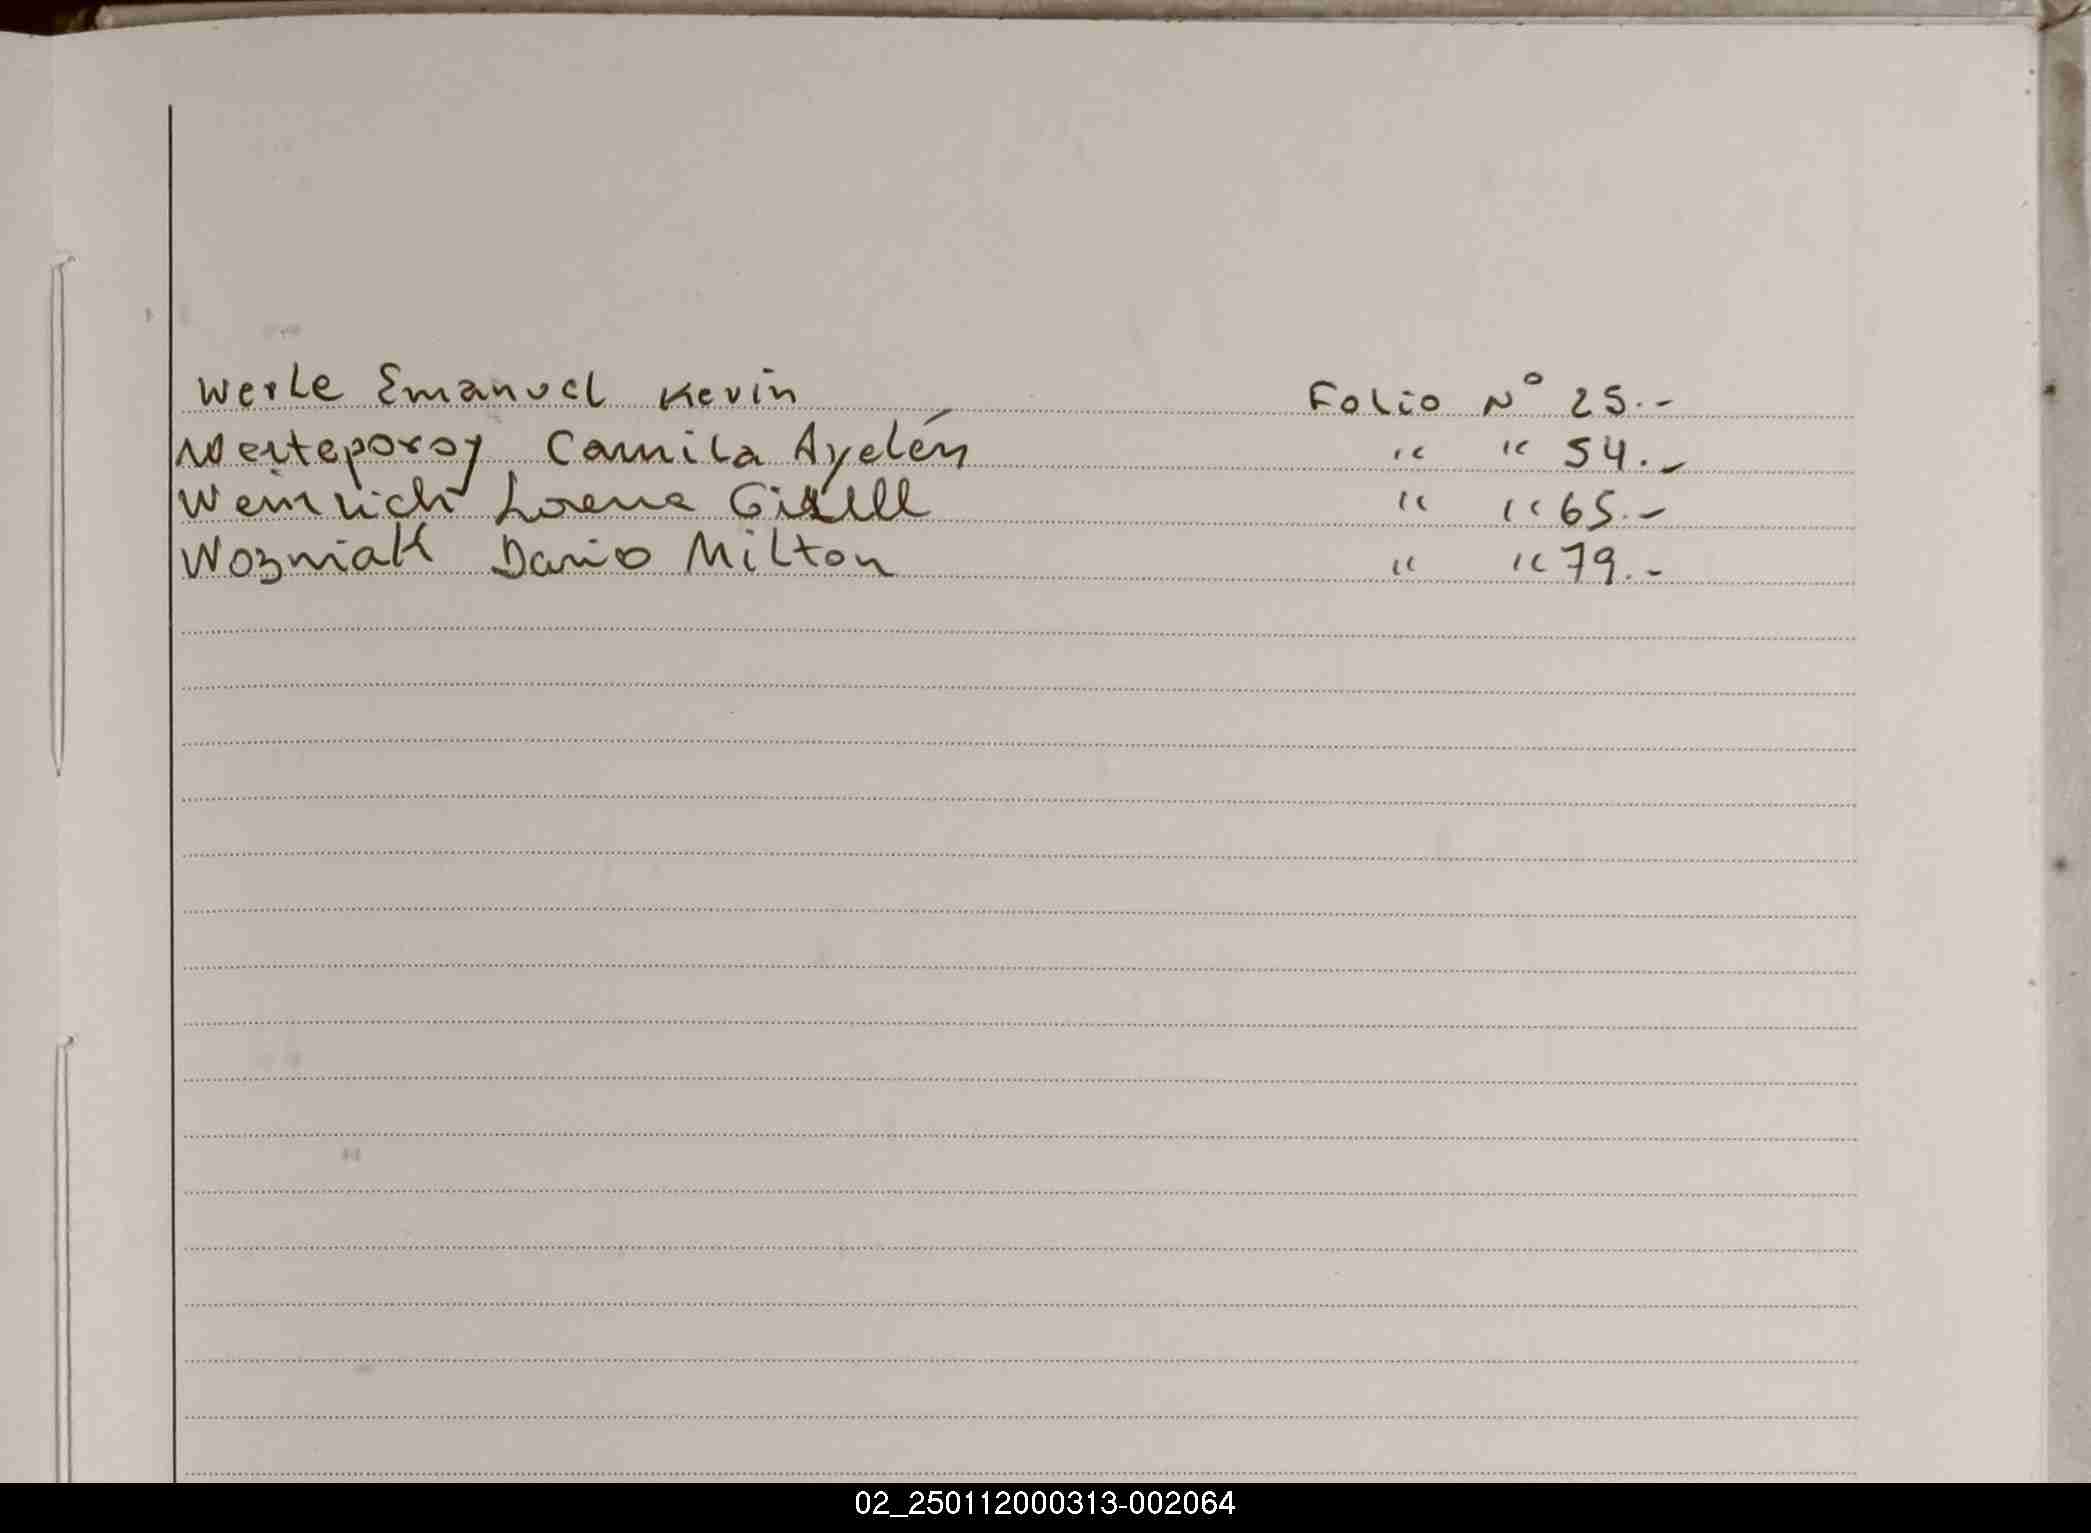 Werle Emanuel Kevin Folio N° 25.-
Camila Ayelén " " 54.-
Weinrich Lorena Gisell " " 65.-
Wozniak Dario Milton " " 79.-
02_250112000313-002064